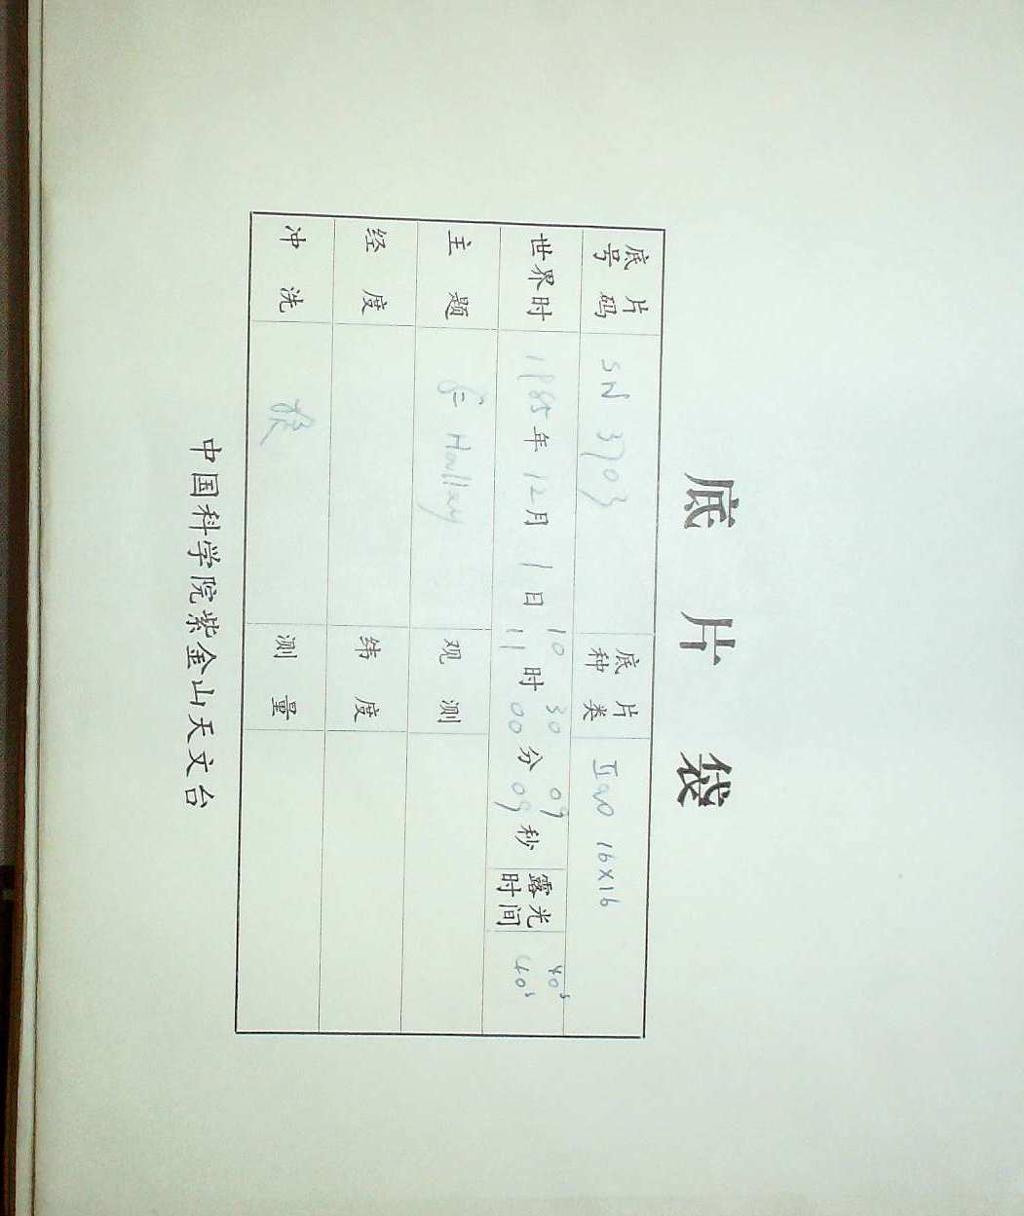 底 片 袋
底片号码 SN 3703 底片种类 IIaO 16×16
世界时 1985年12月1日 10时30分09秒 露光时间 40s
11 00 09 40s
主题 Halley 观测
经度 纬度
冲洗 测量
中国科学院紫金山天文台